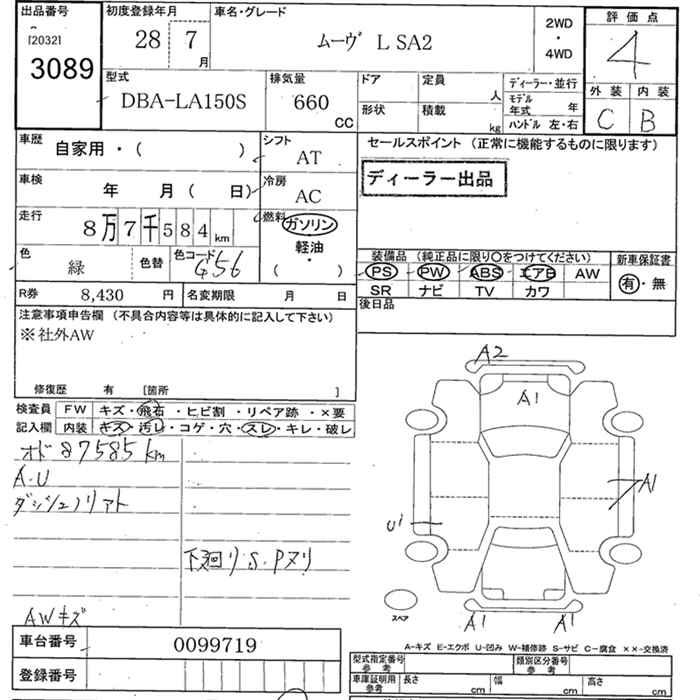 出品番号
[2032]
3089
初度登録年月
28 7
月
車名・グレード
ムーヴ L SA2
2WD
・
4WD
評価点
4
外装 内装
C B
型式
DBA-LA150S
排気量
660
CC
ドア 定員
人
形状 積載
kg
ディーラー・並行
モデル年式 年
ハンドル 左・右
車歴
自家用・( )
シフト
AT
車検
年 月( 日)
冷房
AC
走行
8万7千584 km
燃料
ガソリン
軽油
・
( )
色
緑
色替
色コード
G56
R券 8,430 円 名変期限 月 日
セールスポイント (正常に機能するものに限ります)
ディーラー出品
装備品 (純正品に限り○をつけてください)
PS PW ABS エアB AW
SR ナビ TV カワ
新車保証書
有・無
後日品
注意事項申告欄 (不具合内容等は具体的に記入して下さい)
※社外AW
修復歴 有 [箇所 ]
検査員
記入欄
FW キズ・飛石・ヒビ割・リペア跡・×要
内装 キズ・汚レ・コゲ・穴・スレ・キレ・破レ
オド87585km
A.U
ダッシュノリアト
下廻リS.Pヌリ
AWキズ
A2
A1
A1
U1
A1 A1
スペア
車台番号 0099719
登録番号
A-キズ E-エクボ U-凹み W-補修跡 S-サビ C-腐食 ××-交換済
型式指定番号
参考
類別区分番号
参考
車庫証明用
参考
長さ cm 幅 cm 高さ cm